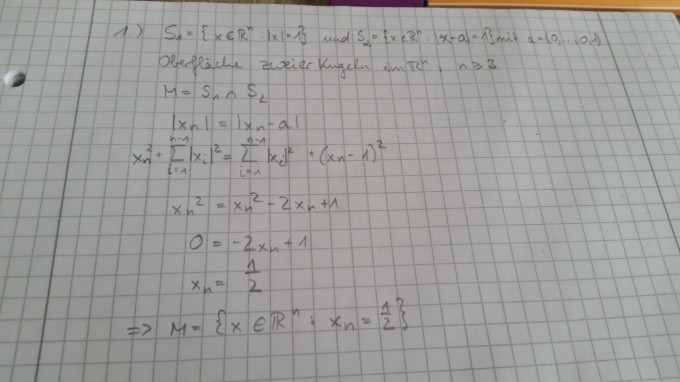 1) S₁ = { x ∈ ℝⁿ : |x| = 1 } und S₂ = { x ∈ ℝⁿ : |x-a| = 1 } mit a = (0,...,0,1)
Oberfläche zweier Kugeln im ℝⁿ, n ≥ 3
M = S₁ ∩ S₂
|xₙ| = |xₙ - a|
xₙ² + ∑ᵢ₌₁ⁿ⁻¹ |xᵢ|² = ∑ᵢ₌₁ⁿ⁻¹ |xᵢ|² + (xₙ - 1)²
xₙ² = xₙ² - 2xₙ + 1
0 = -2xₙ + 1
xₙ = 1/2
=> M = { x ∈ ℝⁿ : xₙ = 1/2 }